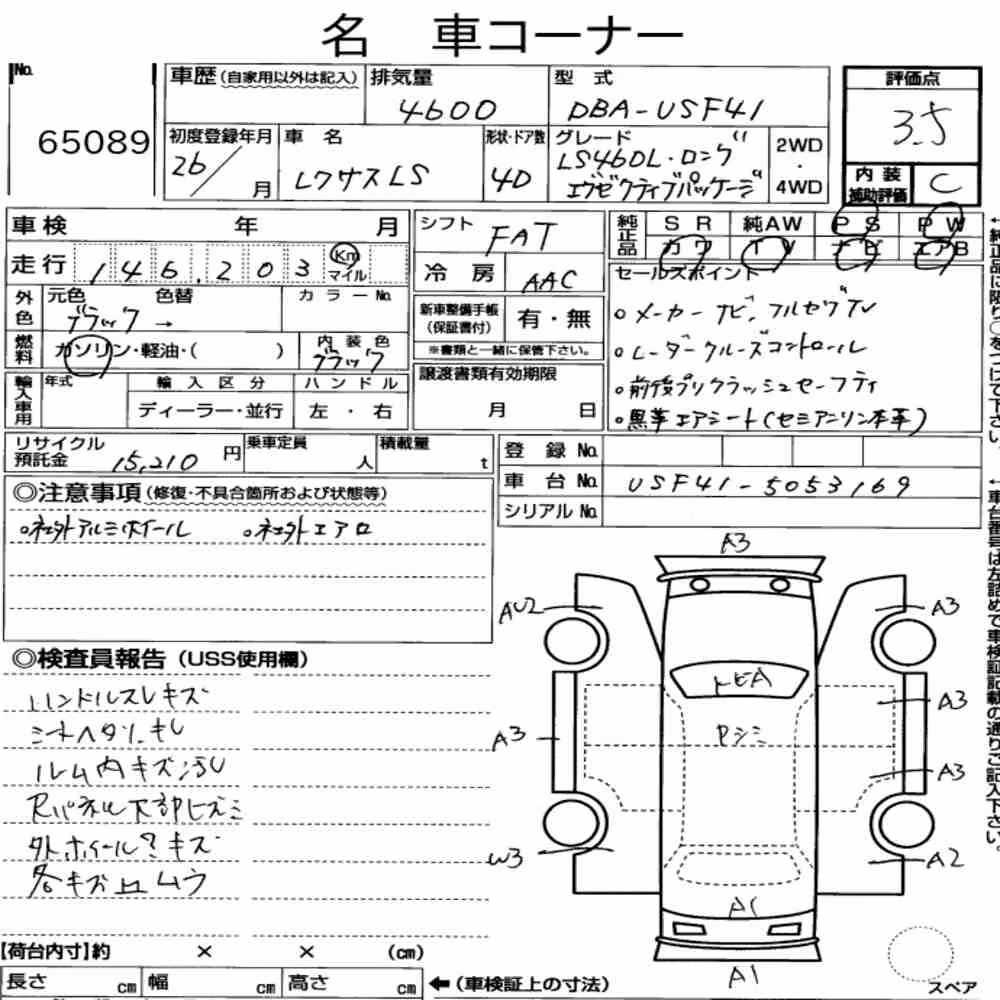 名 車コーナー
No.
65089
車歴(自家用以外は記入)
排気量
4600
型 式
DBA-USF41
評価点
3.5
初度登録年月
26/ 月
車 名
レクサスLS
形状・ドア数
4D
グレード
LS460L・ロング
エグゼクティブパッケージ
2WD
・
4WD
内装
補助評価
C
車検 年 月
シフト
FAT
純正品
SR 純AW PS PW
カワ TV ナビ エアB
走行 146,203 Km マイル
冷房
AAC
セールスポイント
。メーカーナビ,フルセグTV
。レーダークルーズコントロール
。前後プリクラッシュセーフティ
。黒革エアシート(セミアニリン本革)
外色
元色 色替
ブラック →
カラーNo.
新車整備手帳
(保証書付)
有・無
※書類と一緒に保管下さい。
燃料
ガソリン・軽油・( )
内装色
ブラック
譲渡書類有効期限
月 日
輸入車用
年式
輸入区分
ハンドル
ディーラー・並行
左・右
リサイクル
預託金
15,210円
乗車定員
人
積載量
t
登録 No.
車台 No.
USF41-5053169
シリアル No.
◎注意事項(修復・不具合箇所および状態等)
。社外アルミホイール 。社外エアロ
◎検査員報告(USS使用欄)
ハンドルスレキズ
シートヘタリ.キレ
ルーム内キズ汚レ
Rパネル下部ヒズミ
外ホイールキズ
各キズ凹ムラ
A3
AU2
A3
トビA
A3
A3
Pシミ
A3
W3
A2
A1
A1
スペア
【荷台内寸】約 × × (cm)
長さ cm 幅 cm 高さ cm
←(車検証上の寸法)
←純正品に限り○をつけて下さい。
←車台番号は左詰めで車検証記載の通りご記入下さい。